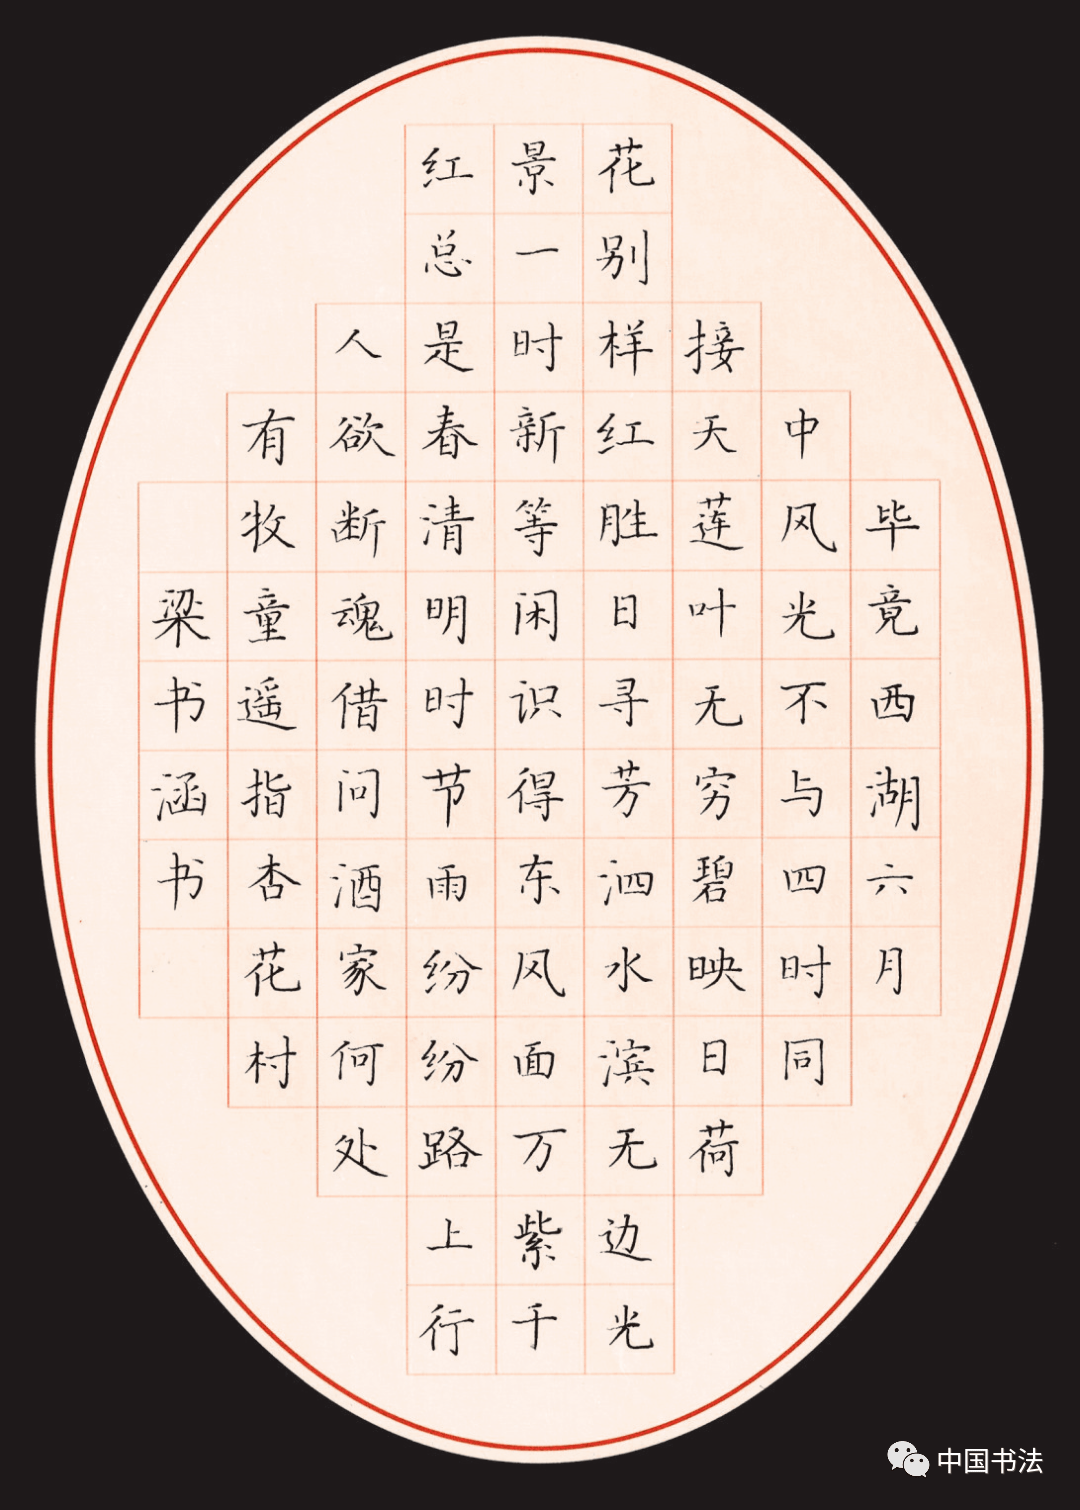 毕竟西湖六月
中风光不与四时同
接天莲叶无穷碧映日荷
花别样红胜日寻芳泗水滨无边光
景一时新等闲识得东风面万紫千
红总是春清明时节雨纷纷路上行
人欲断魂借问酒家何处
有牧童遥指杏花村
梁书涵书
中国书法